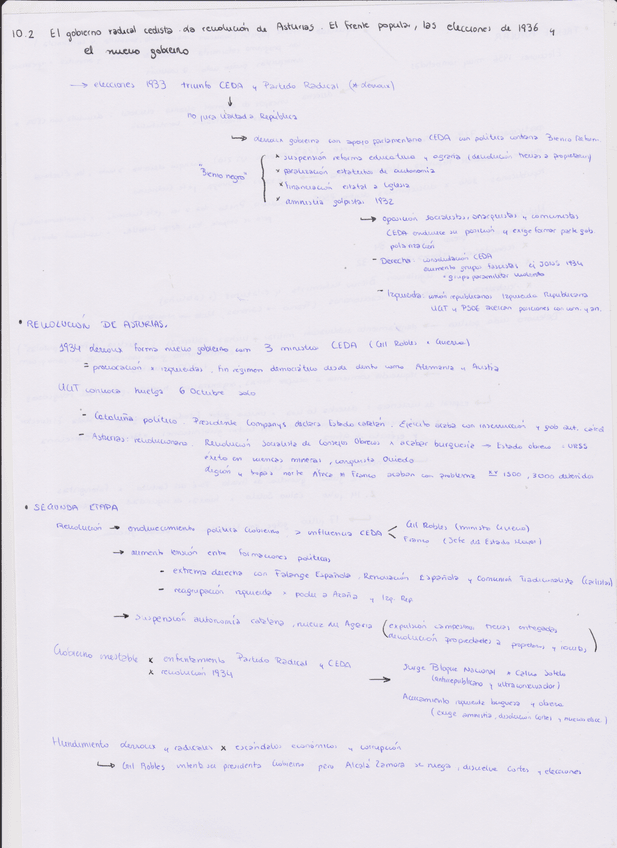 10.2 El gobierno radical cedista la revolución de Asturias. El Frente popular, las elecciones de 1936 y
el nuevo gobierno
→ elecciones 1933 triunfo CEDA y Partido Radical (* Lerroux)
↓
no jura lealtad a República
→ Lerroux gobierno con apoyo parlamentario CEDA con política contraria Bienio Reform.
"Bienio negro"
x suspensión reforma educativa y agraria (devolución tierras a propietarios)
x paralización estatutos de autonomía
x financiación estatal a Iglesia
x amnistía golpistas 1932
→ oposición socialistas, anarquistas y comunistas
CEDA endurece su posición y exige formar parte gob
- Derecha: consolidación CEDA
aumento grupos fascistas ej JONS 1934
- grupo paramilitar violento
- Izquierda: unión republicanos Izquierda Republicana
UGT y PSOE acercan posiciones con com. y an.
• REVOLUCIÓN DE ASTURIAS.
1934 Lerroux forma nuevo gobierno con 3 ministros CEDA (Gil Robles * Guerra)
= provocación x izquierdas. fin régimen democrático desde dentro como Alemania y Austria
UGT convoca huelga 6 Octubre
- Cataluña: político. Presidente Companys declara Estado catalán. Ejército acaba con insurrección y gob aut.
- Asturias: revolucionario. Revolución Socialista de Consejos Obreros x acabar burguesía → Estado obrero. URSS
éxito en cuencas mineras, conquista Oviedo
Legión y tropas norte África * Franco acaban con problema 1500, 3000 detenidos
• SEGUNDA ETAPA
Revolución → endurecimiento política Gobierno. > influencia CEDA < Gil Robles (ministro Guerra)
Franco (Jefe del Estado Mayor)
→ aumento tensión entre formaciones políticas
- extrema derecha con Falange Española. Renovación Española y Comunión Tradicionalista (carlistas)
- reagrupación izquierda > poder a Azaña y Izq Rep
→ suspensión autonomía catalana, nueva ley Agraria (expulsión campesinos tierras entregadas
devolución propiedades a propietarios y nobles)
Gobierno inestable x enfrentamiento Partido Radical y CEDA
x revolución 1934
→ Surge Bloque Nacional * Calvo Sotelo
(antirrepublicano y ultraconservador)
Acercamiento izquierda burguesa y obrera
(exige amnistía, disolución Cortes y nuevas elec.)
Hundimiento Lerroux y radicales x escándalos económicos y corrupción
→ Gil Robles intenta ser presidente Gobierno pero Alcalá Zamora se niega, disuelve Cortes y elecciones